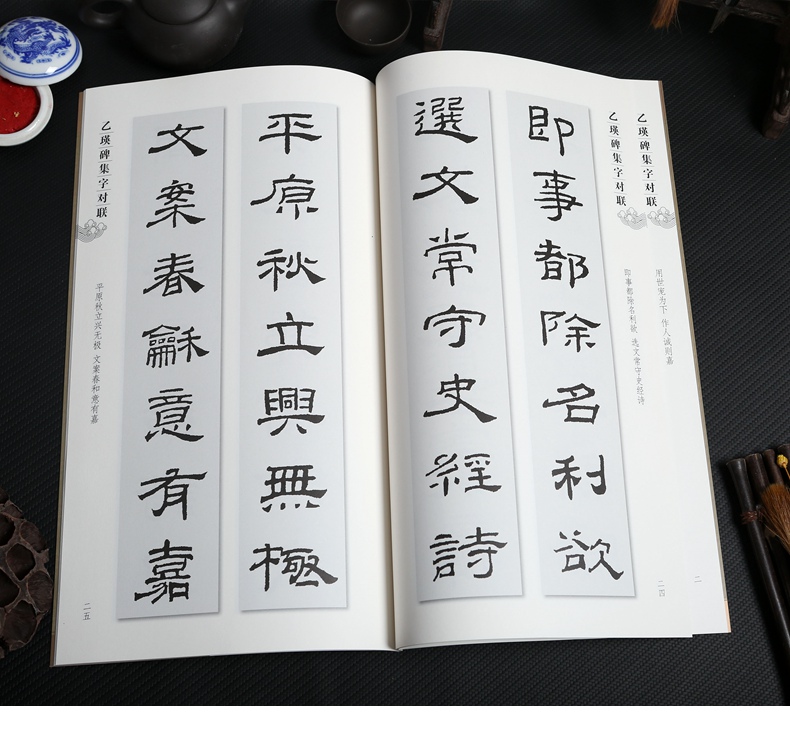 乙瑛碑集字对联
用世宠为下 作人诚则嘉
乙瑛碑集字对联
即事都除名利欲 选文常守史经诗
二四
即事都除名利欲
選文常守史經詩
平原秋立興無極
文案春龢意有嘉
乙瑛碑集字对联
平原秋立兴无极 文案春和意有嘉
二五